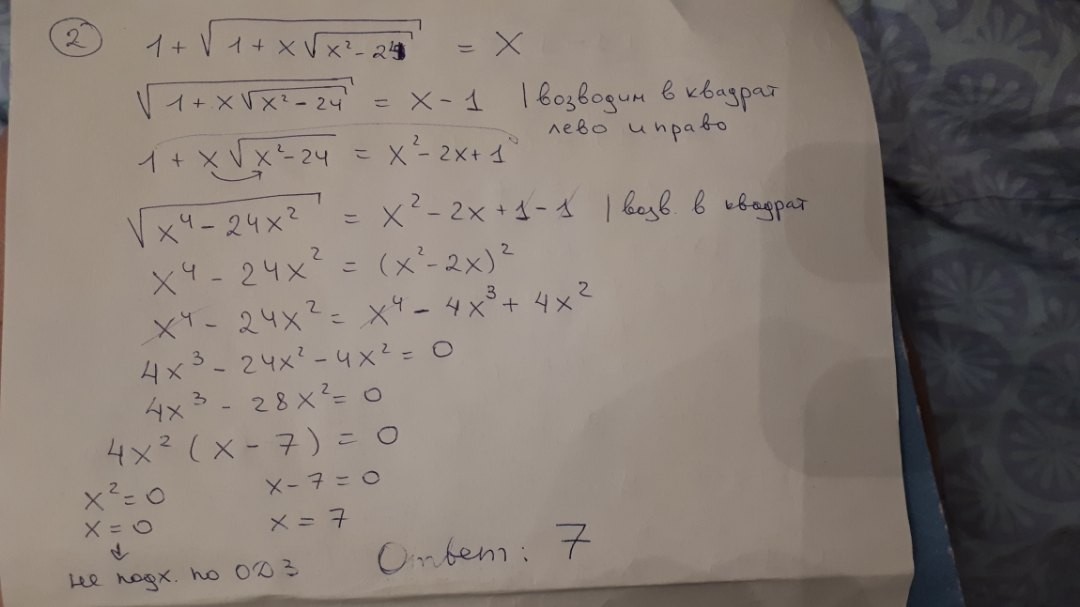 2
1 + √(1 + x√(x² - 24)) = x
√(1 + x√(x² - 24)) = x - 1 | возводим в квадрат
лево и право
1 + x√(x² - 24) = x² - 2x + 1
√(x⁴ - 24x²) = x² - 2x + 1 - 1 | возв. в квадрат
x⁴ - 24x² = (x² - 2x)²
x⁴ - 24x² = x⁴ - 4x³ + 4x²
4x³ - 24x² - 4x² = 0
4x³ - 28x² = 0
4x² (x - 7) = 0
x² = 0 x - 7 = 0
x = 0 x = 7
↓
не подх. по ОДЗ
Ответ: 7